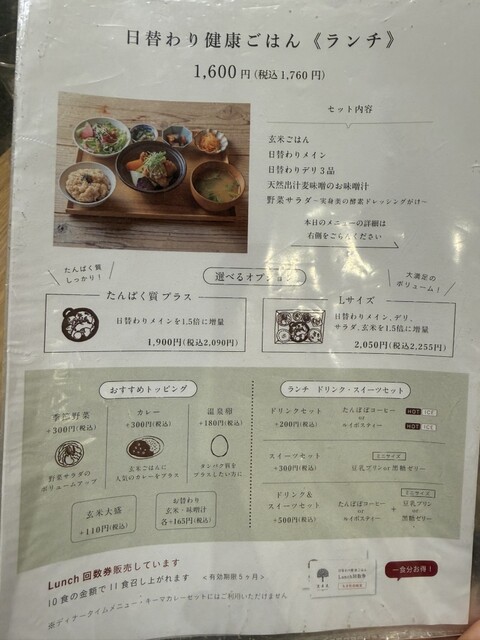 日替わり健康ごはん《ランチ》
1,600円(税込1,760円)
セット内容
玄米ごはん
日替わりメイン
日替わりデリ3品
天然出汁麦味噌のお味噌汁
野菜サラダ-実身美の酵素ドレッシングがけ-
本日のメニューの詳細は
右側をごらんください
たんぱく質
しっかり!
選べるオプション
大満足の
ボリューム!
たんぱく質 プラス
日替わりメインを1.5倍に増量
1,900円(税込2,090円)
Lサイズ
日替わりメイン、デリ、
サラダ、玄米を1.5倍に増量
2,050円(税込2,255円)
おすすめトッピング
季節野菜
+300円(税込)
野菜サラダの
ボリュームアップ
カレー
+300円(税込)
玄米ごはんに
人気のカレーをプラス
温泉卵
+180円(税込)
タンパク質を
プラスしたい方に
玄米大盛
+110円(税込)
お替わり
玄米・味噌汁
各+165円(税込)
ランチ ドリンク・スイーツセット
ドリンクセット
+200円(税込)
たんぽぽコーヒー
or
ルイボスティー
HOT ICE
HOT ICE
スイーツセット
+300円(税込)
ミニサイズ
豆乳プリン or 黒糖ゼリー
ドリンク&
スイーツセット
+500円(税込)
たんぽぽコーヒー
or
ルイボスティー
+
ミニサイズ
豆乳プリン
or
黒糖ゼリー
Lunch回数券販売しています
10食の金額で11食召し上がれます <有効期限5ヶ月>
※ディナータイムメニュー・キーマカレーセットにはご利用いただけません
Lunch回数券
一食分お得!